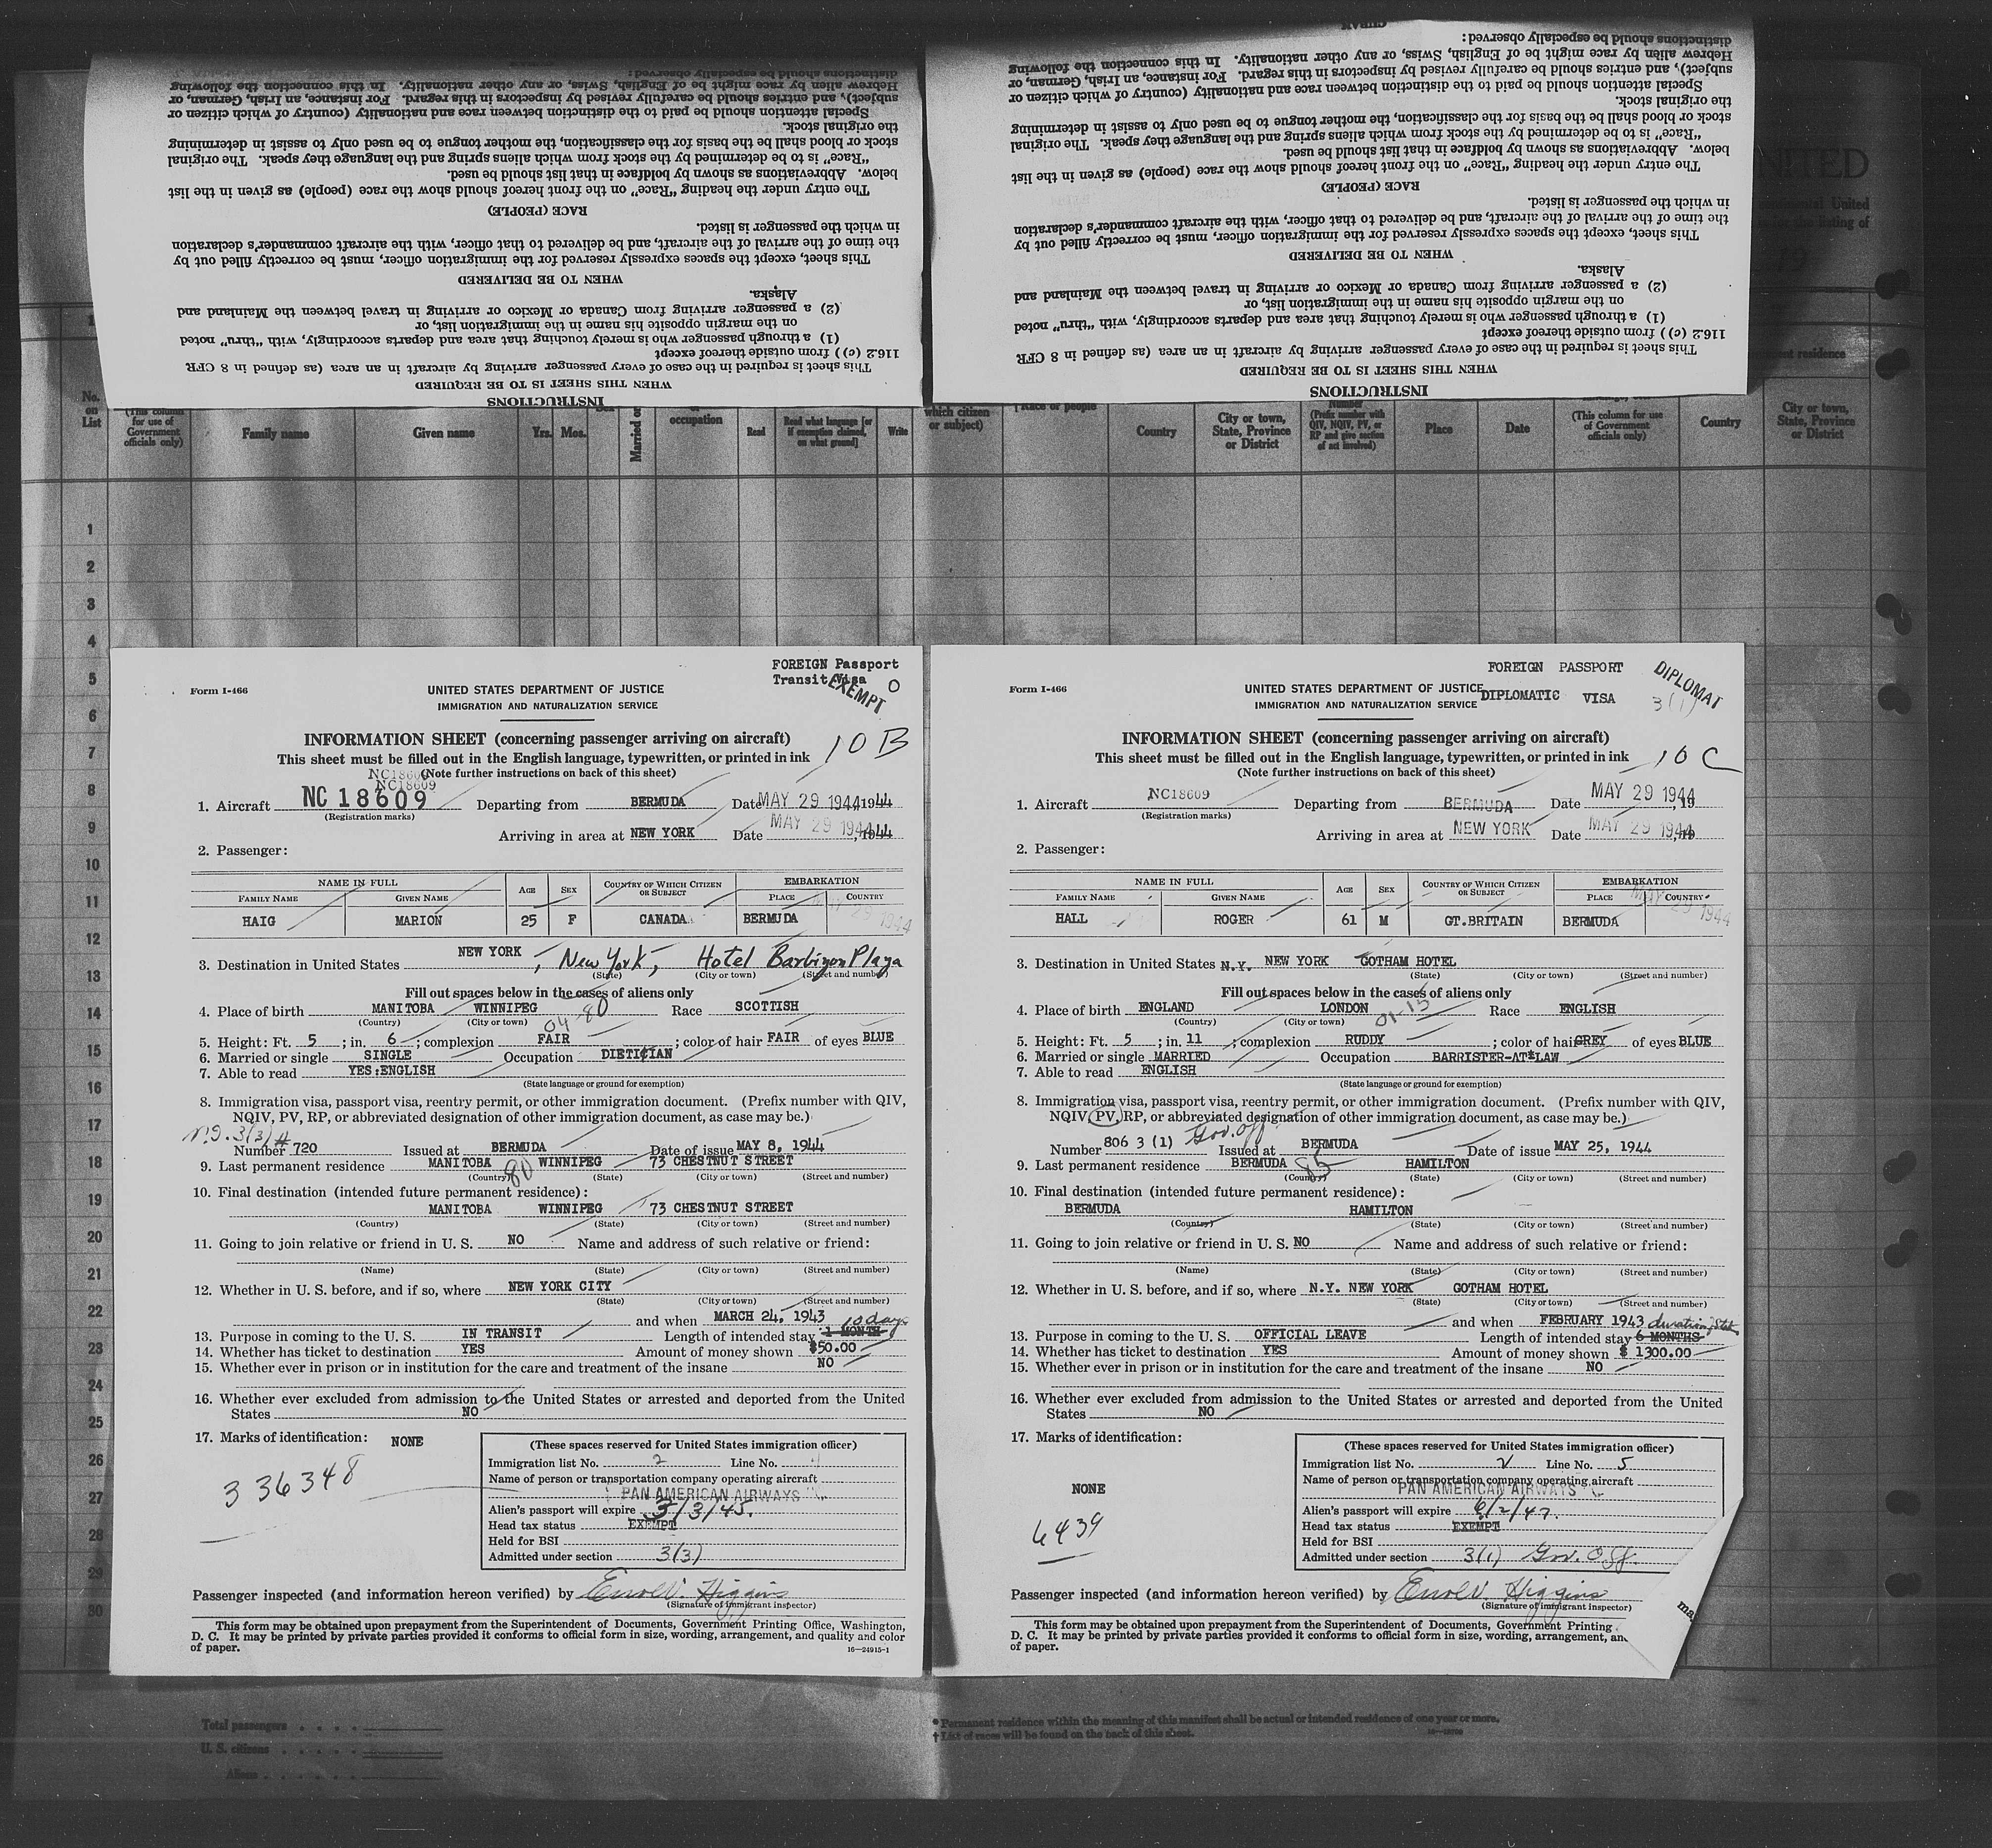 INSTRUCTIONS
WHEN THIS SHEET IS TO BE REQUIRED
This sheet is required in the case of every passenger arriving by aircraft in an area (as defined in 8 CFR
116.2 (c)) from outside thereof except
(1) a through passenger who is merely touching that area and departs accordingly, with "thru" noted
on the margin opposite his name in the immigration list, or
(2) a passenger arriving from Canada or Mexico or arriving in travel between the Mainland and
Alaska.
WHEN TO BE DELIVERED
This sheet, except the spaces expressly reserved for the immigration officer, must be correctly filled out by
the time of the arrival of the aircraft, and be delivered to that officer, with the aircraft commander's declaration
in which the passenger is listed.
RACE (PEOPLE)
The entry under the heading "Race" on the front hereof should show the race (people) as given in the list
below. Abbreviations as shown by boldface in that list should be used.
"Race" is to be determined by the stock from which aliens spring and the language they speak. The original
stock or blood shall be the basis for the classification, the mother tongue to be used only to assist in determining
the original stock.
Special attention should be paid to the distinction between race and nationality (country of which citizen or
subject), and entries should be carefully revised by inspectors in this regard. For instance, an Irish, German, or
Hebrew alien by race might be of English, Swiss, or any other nationality. In this connection the following
distinctions should be especially observed:
INSTRUCTIONS
WHEN THIS SHEET IS TO BE REQUIRED
This sheet is required in the case of every passenger arriving by aircraft in an area (as defined in 8 CFR
116.2 (c)) from outside thereof except
(1) a through passenger who is merely touching that area and departs accordingly, with "thru" noted
on the margin opposite his name in the immigration list, or
(2) a passenger arriving from Canada or Mexico or arriving in travel between the Mainland and
Alaska.
WHEN TO BE DELIVERED
This sheet, except the spaces expressly reserved for the immigration officer, must be correctly filled out by
the time of the arrival of the aircraft, and be delivered to that officer, with the aircraft commander's declaration
in which the passenger is listed.
RACE (PEOPLE)
The entry under the heading "Race" on the front hereof should show the race (people) as given in the list
below. Abbreviations as shown by boldface in that list should be used.
"Race" is to be determined by the stock from which aliens spring and the language they speak. The original
stock or blood shall be the basis for the classification, the mother tongue to be used only to assist in determining
the original stock.
Special attention should be paid to the distinction between race and nationality (country of which citizen or
subject), and entries should be carefully revised by inspectors in this regard. For instance, an Irish, German, or
Hebrew alien by race might be of English, Swiss, or any other nationality. In this connection the following
distinctions should be especially observed:
CUBAN
No. on List (This column for use of Government officials only) Family name Given name Yrs. Mos. Married or occupation Read Read what language [or if exemption claimed, on what ground] Write which citizen or subject) Race or people Country City or town, State, Province or District Number (Prefix number with QIV, NQIV, PV, or RP and give section of act involved) Place Date (This column for use of Government officials only) Country City or town, State, Province or District
1
2
3
4
5
6
7
8
9
10
11
12
13
14
15
16
17
18
19
20
21
22
23
24
25
26
27
28
29
30
FOREIGN Passport
Transit Visa
EXEMPT 0
Form I-466
UNITED STATES DEPARTMENT OF JUSTICE
IMMIGRATION AND NATURALIZATION SERVICE
INFORMATION SHEET (concerning passenger arriving on aircraft) 10 B
This sheet must be filled out in the English language, typewritten, or printed in ink
(Note further instructions on back of this sheet)
NC18609
NC18609
1. Aircraft NC 18609 Departing from BERMUDA Date MAY 29 1944, 1944
(Registration marks)
Arriving in area at NEW YORK Date MAY 29 1944, 1944
2. Passenger:
NAME IN FULL AGE SEX COUNTRY OF WHICH CITIZEN OR SUBJECT EMBARKATION
FAMILY NAME GIVEN NAME PLACE COUNTRY
HAIG MARION 25 F CANADA BERMUDA MAY 29 1944
3. Destination in United States NEW YORK, New York, Hotel Barbizon Plaza
(State) (City or town) (Street and number)
Fill out spaces below in the cases of aliens only
4. Place of birth MANITOBA WINNIPEG Race SCOTTISH
(Country) (City or town) 04-80
5. Height: Ft. 5; in. 6; complexion FAIR; color of hair FAIR of eyes BLUE
6. Married or single SINGLE Occupation DIETITIAN
7. Able to read YES:ENGLISH
(State language or ground for exemption)
8. Immigration visa, passport visa, reentry permit, or other immigration document. (Prefix number with QIV,
NQIV, PV, RP, or abbreviated designation of other immigration document, as case may be.)
3(3) #
Number 720 Issued at BERMUDA Date of issue MAY 8, 1944
9. Last permanent residence MANITOBA WINNIPEG 73 CHESTNUT STREET
(Country) 80 (State) (City or town) (Street and number)
10. Final destination (intended future permanent residence):
MANITOBA WINNIPEG 73 CHESTNUT STREET
(Country) (State) (City or town) (Street and number)
11. Going to join relative or friend in U. S. NO Name and address of such relative or friend:
(Name) (State) (City or town) (Street and number)
12. Whether in U. S. before, and if so, where NEW YORK CITY
(State) (City or town) (Street and number)
and when MARCH 24, 1943 10 days
13. Purpose in coming to the U. S. IN TRANSIT Length of intended stay 1 MONTH
14. Whether has ticket to destination YES Amount of money shown $50.00
15. Whether ever in prison or in institution for the care and treatment of the insane NO
16. Whether ever excluded from admission to the United States or arrested and deported from the United
States NO
17. Marks of identification: NONE
336348
(These spaces reserved for United States immigration officer)
Immigration list No. 2 Line No.
Name of person or transportation company operating aircraft
PAN AMERICAN AIRWAYS
Alien's passport will expire 3/3/45.
Head tax status EXEMPT
Held for BSI
Admitted under section 3(3)
Passenger inspected (and information hereon verified) by Errol V. Higgins
(Signature of immigrant inspector)
This form may be obtained upon prepayment from the Superintendent of Documents, Government Printing Office, Washington,
D. C. It may be printed by private parties provided it conforms to official form in size, wording, arrangement, and quality and color
of paper. 16-24915-1
FOREIGN PASSPORT
DIPLOMATIC VISA
DIPLOMAT
3(1)
Form I-466
UNITED STATES DEPARTMENT OF JUSTICE
IMMIGRATION AND NATURALIZATION SERVICE
INFORMATION SHEET (concerning passenger arriving on aircraft)
This sheet must be filled out in the English language, typewritten, or printed in ink 10 C
(Note further instructions on back of this sheet)
1. Aircraft NC18609 Departing from BERMUDA Date MAY 29 1944, 19
(Registration marks)
Arriving in area at NEW YORK Date MAY 29 1944, 19
2. Passenger:
NAME IN FULL AGE SEX COUNTRY OF WHICH CITIZEN OR SUBJECT EMBARKATION
FAMILY NAME GIVEN NAME PLACE COUNTRY
HALL ROGER 61 M GT.BRITAIN BERMUDA MAY 29 1944
3. Destination in United States N.Y. NEW YORK GOTHAM HOTEL
(State) (City or town) (Street and number)
Fill out spaces below in the cases of aliens only
4. Place of birth ENGLAND LONDON Race ENGLISH
(Country) (City or town) 01-15
5. Height: Ft. 5; in. 11; complexion RUDDY; color of hair GREY of eyes BLUE
6. Married or single MARRIED Occupation BARRISTER-AT-LAW
7. Able to read ENGLISH
(State language or ground for exemption)
8. Immigration visa, passport visa, reentry permit, or other immigration document. (Prefix number with QIV,
NQIV, PV, RP, or abbreviated designation of other immigration document, as case may be.)
Number 806 3 (1) Gov. Off Issued at BERMUDA Date of issue MAY 25, 1944
9. Last permanent residence BERMUDA HAMILTON
(Country) 85 (State) (City or town) (Street and number)
10. Final destination (intended future permanent residence):
BERMUDA HAMILTON
(Country) (State) (City or town) (Street and number)
11. Going to join relative or friend in U. S. NO Name and address of such relative or friend:
(Name) (State) (City or town) (Street and number)
12. Whether in U. S. before, and if so, where N.Y. NEW YORK GOTHAM HOTEL
(State) (City or town) (Street and number)
and when FEBRUARY 1943 duration
13. Purpose in coming to the U. S. OFFICIAL LEAVE Length of intended stay 6 MONTHS
14. Whether has ticket to destination YES Amount of money shown $ 1300.00
15. Whether ever in prison or in institution for the care and treatment of the insane NO
16. Whether ever excluded from admission to the United States or arrested and deported from the United
States NO
17. Marks of identification:
NONE
6439
(These spaces reserved for United States immigration officer)
Immigration list No. 2 Line No. 5
Name of person or transportation company operating aircraft
PAN AMERICAN AIRWAYS
Alien's passport will expire 6/2/47.
Head tax status EXEMPT
Held for BSI
Admitted under section 3(1) Gov. Off.
Passenger inspected (and information hereon verified) by Errol V. Higgins
(Signature of immigrant inspector)
This form may be obtained upon prepayment from the Superintendent of Documents, Government Printing
D. C. It may be printed by private parties provided it conforms to official form in size, wording, arrangement, an
of paper.
Total passengers
U. S. citizens
Aliens
* Permanent residence within the meaning of this manifest shall be actual or intended residence of one year or more.
† List of races will be found on the back of this sheet.